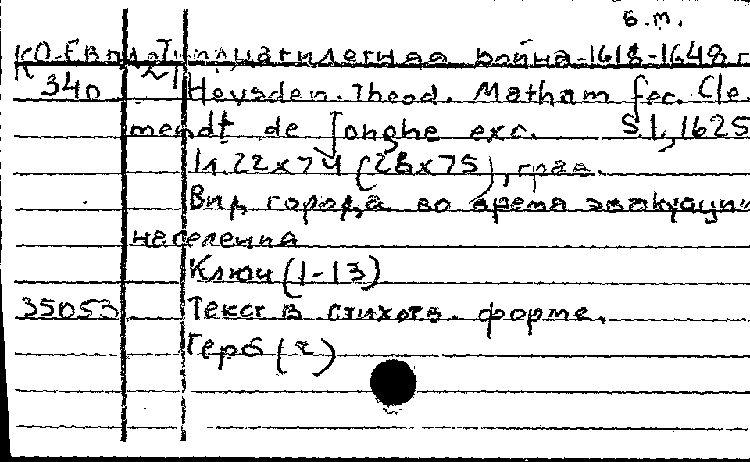 Б.М.
КО-Евп Тридцатилетняя война-1618-1648 г
К 340 Heusden. Theod. Matham fec. Cle
mendt de Jonghe exc. S.l., 1625
1л. 22x74 (28x75), грав.
Вид города во время эвакуации
населения
Ключ (1-13)
35053 Текст в стихотв. форме.
Герб (2)